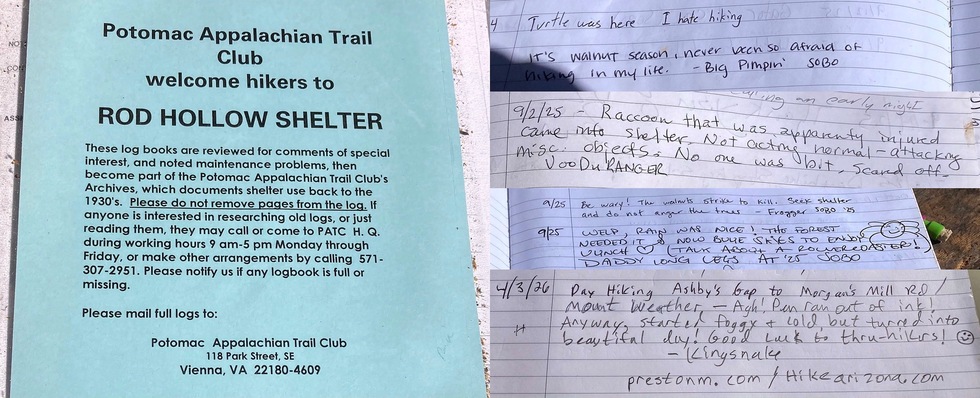 Potomac Appalachian Trail
Club
welcome hikers to
ROD HOLLOW SHELTER
These log books are reviewed for comments of special
interest, and noted maintenance problems, then
become part of the Potomac Appalachian Trail Club's
Archives, which documents shelter use back to the
1930's. Please do not remove pages from the log. If
anyone is interested in researching old logs, or just
reading them, they may call or come to PATC H. Q.
during working hours 9 am-5 pm Monday through
Friday, or make other arrangements by calling 571-
307-2951. Please notify us if any logbook is full or
missing.
Please mail full logs to:
Potomac Appalachian Trail Club
118 Park Street, SE
Vienna, VA 22180-4609
Turtle was here I hate hiking
It's walnut season, never been so afraid of
hiking in my life. - Big Pimpin' SOBO
an early night
9/2/25 - Raccoon that was apparently injured
came into shelter. Not acting normal - attacking
misc. objects. No one was bit. Scared off.
VooDuRANGER
9/25 Be wary! The walnuts strike to kill. Seek shelter
and do not anger the trees - Frogger SOBO '25
9/25 WELP, RAIN WAS NICE! THE FOREST
NEEDED IT & NOW BLUE SKIES TO ENJOY
LUNCH (TALK ABOUT A ROLLERCOASTER!
DADDY LONG LEGS AT '25 SOBO
4/3/26 Day Hiking Ashby's Gap to Morgan's Mill Rd/
Mount Weather - Agh! Pen ran out of ink!
Anyway, started foggy + cold but turned into
beautiful day! Good Luck to thru-hikers!
- Kingsnake
prestonm.com / Hikearizona.com